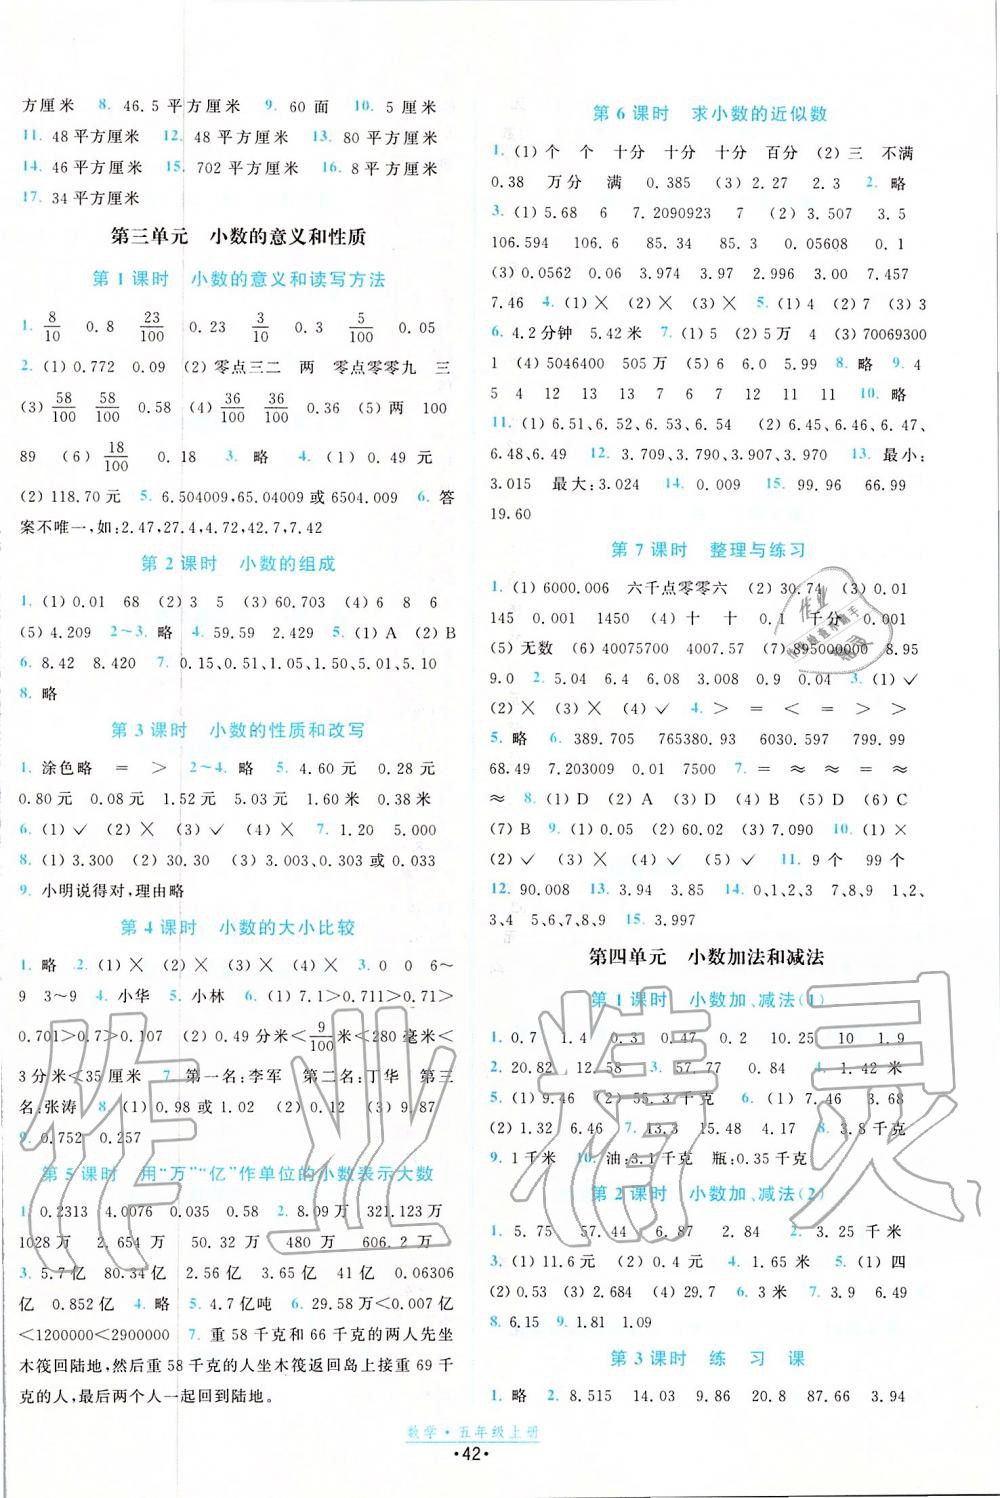 方厘米 8. 46.5平方厘米 9. 60面 10. 5厘米
11. 48平方厘米 12. 48平方厘米 13. 80平方厘米
14. 46平方厘米 15. 702平方厘米 16. 8平方厘米
17. 34平方厘米
第三单元 小数的意义和性质
第1课时 小数的意义和读写方法
1. 8/10 0.8 23/100 0.23 3/10 0.3 5/100 0.05
2. (1) 0.772 0.09 (2)零点三二 两 零点零零九 三
(3) 58/100 58/100 0.58 (4) 36/100 36/100 0.36 (5)两 100
89 (6) 18/100 0.18 3. 略 4. (1) 0.49元
(2) 118.70元 5. 6.504009,65.04009或6504.009 6. 答
案不唯一,如:2.47,27.4,4.72,42.7,7.42
第2课时 小数的组成
1. (1) 0.01 68 (2) 3 5 (3) 60.703 (4) 6 8 6
(5) 4.209 2～3. 略 4. 59.59 2.429 5. (1) A (2) B
6. 8.42 8.420 7. 0.15、0.51、1.05、1.50、5.01、5.10
8. 略
第3课时 小数的性质和改写
1. 涂色略 = > 2～4. 略 5. 4.60元 0.28元
0.80元 0.08元 1.52元 5.03元 1.60米 0.38米
6. (1) ✓ (2) × (3) ✓ (4) × 7. 1.20 5.000
8. (1) 3.300 (2) 30.30 (3) 3.003、0.303或0.033
9. 小明说得对,理由略
第4课时 小数的大小比较
1. 略 2. (1) × (2) × (3) × (4) × 3. 0 0 6～
9 3～9 4. 小华 5. 小林 6. (1) 7.1>0.711>
0.701>0.7>0.107 (2) 0.49分米<9/100米<280毫米<
3分米<35厘米 7. 第一名:李军 第二名:丁华 第三
名:张涛 8. (1) 0.98或1.02 (2) 0.12 (3) 9.87
9. 0.752 0.257
第5课时 用“万”“亿”作单位的小数表示大数
1. 0.2313 4.0076 0.035 0.58 2. 8.09万 321.123万
1028万 2.654万 50.32万 480万 606.2万
3. 5.7亿 80.34亿 2.56亿 3.65亿 41亿 0.06306
亿 0.852亿 4. 略 5. 4.7亿吨 6. 29.58万<0.007亿
<1200000<2900000 7. 重58千克和66千克的两人先坐
木筏回陆地,然后重58千克的人坐木筏返回岛上接重69千
克的人,最后两个人一起回到陆地。
第6课时 求小数的近似数
1. (1)个 个 十分 十分 十分 百分 (2)三 不满
0.38 万分 满 0.385 (3) 2.27 2.3 2. 略
3. (1) 5.68 6 7.2090923 7 (2) 3.507 3.5
106.594 106.6 0.85 0.9 0.05608 0.1
(3) 0.0562 0.06 3.974 3.97 3.00 3 7.457
7.46 4. (1) × (2) × (3) × 5. (1) 4 (2) 7 (3) 3
6. 4.2分钟 5.42米 7. (1) 5 (2) 5万 4 (3) 70069300
1 (4) 5046400 505万 (5) 6 0.2 5.99 8. 略 9. 4
5 4 12 13 13 7 6 7 12 11 11 10. 略
11. (1) 6.51、6.52、6.53、6.54 (2) 6.45、6.46、6.47、
6.48、6.49 12. 3.709、3.790、3.907、3.970 13. 最小:
3.015 最大:3.024 14. 0.009 15. 99.96 66.99
19.60
第7课时 整理与练习
1. (1) 6000.006 六千点零零六 (2) 30.74 (3) 0.01
145 0.001 1450 (4)十 十 0.1 千分 0.001
(5)无数 (6) 40075700 4007.57 (7) 895000000 8.95
9.0 2. 5.04 6.4 6.08 3.008 0.9 0.04 3. (1) ✓
(2) × (3) × (4) ✓ 4. > = < = > >
5. 略 6. 389.705 765380.93 6030.597 799.99
68.49 7.203009 0.01 7500 7. = ≈ ≈ = ≈
≈ 8. (1) D (2) A (3) D (4) B (5) A (6) C
(7) B 9. (1) 0.05 (2) 60.02 (3) 7.090 10. (1) ×
(2) ✓ (3) × (4) ✓ (5) ✓ 11. 9个 99个
12. 90.008 13. 3.94 3.85 14. 0、1、2、3 7、8、9 1、2、
3、4 5、6、7、8、9 15. 3.997
第四单元 小数加法和减法
第1课时 小数加、减法(1)
1. 0.7 1.4 0.3 0.47 0.2 10.25 10 1.9
2. 20.82 12.58 3. 57.77 0.84 4. 1.42米
5. (1) 9.46 (2) 55.3千克 6. (1) 7.46 3.68
(2) 9.46 6.48 7. 13.3 15.48 4.17 8. 3.8千克
9. 1千米 10. 油:3.1千克 瓶:0.35千克
第2课时 小数加、减法(2)
1. 5.75 57.44 6.87 2.84 2. 3.25千米
3. (1) 11.6元 (2) 0.4元 4. 1.65米 5. (1)四
(2) 0.53 (3) 2.684 (4) 29.7 6. 3米 7. 3.9 6.49
8. 6.15 9. 1.81 1.09
第3课时 练习课
1. 略 2. 8.515 14.03 9.86 20.8 87.66 3.94
数学·五年级上册
·42·
作业精灵